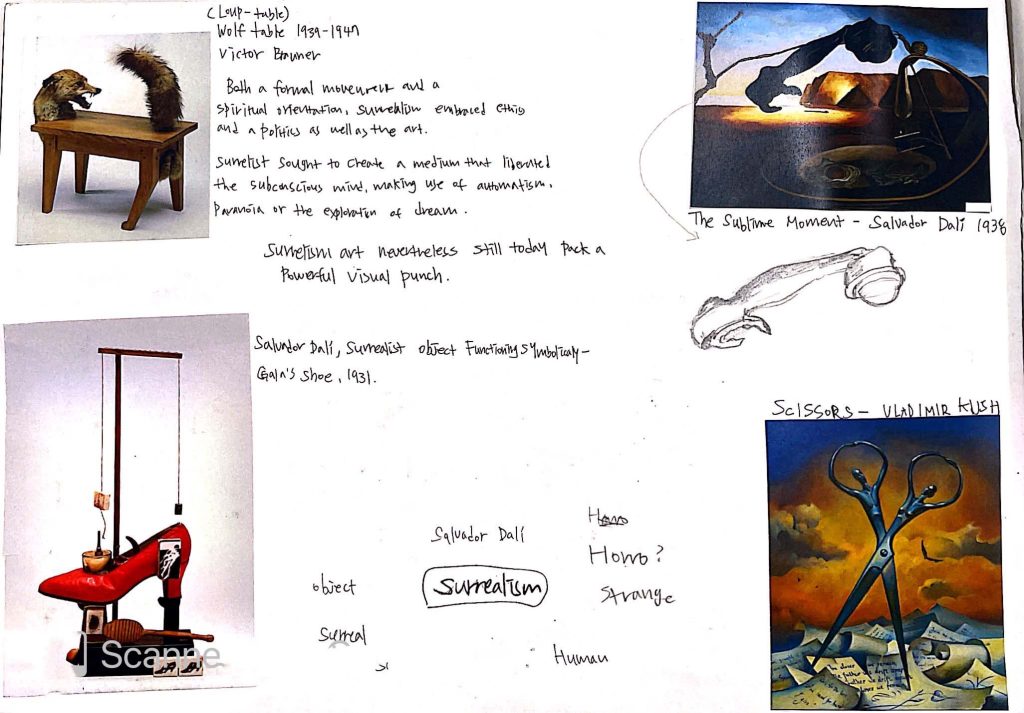 (Loup-table)
Wolf table 1939-1947
Victor Brauner
Both a formal movement and a
spiritual orientation, surrealism embraced ethis
and a politics as well as the art.
surrelist sought to create a medium that liberated
the subconscious mind, making use of automatism,
Paranoia or the exploration of dream.
Surrelism art nevertheless still today pack a
Powerful visual punch.
The Sublime Moment - Salvador Dalí 1938
Salvador Dalí, Surrealist object Functioning symbolically-
Gala's shoe, 1931.
SCISSORS- VLADIMIR KUSH
Salvador Dalí
Homo?
object
Surrealism
Strange
Surreal
Human
Scanne